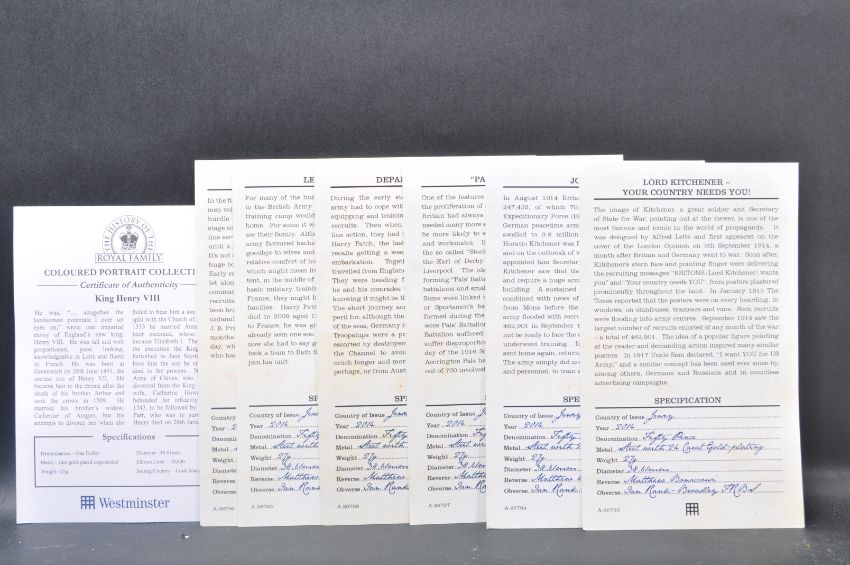 THE HISTORY OF THE
ROYAL FAMILY
COLOURED PORTRAIT COLLECTI
Certificate of Authenticity
King Henry VIII
He was, "... altogether the
handsomest potentate I ever set
eyes on," wrote one impartial
envoy of England's new king,
Henry VIII. He was tall and well
proportioned, good looking,
knowledgeable in Latin and fluent
in French. He was born at
Greenwich on 28th June 1491, the
second son of Henry VII. He
became heir to the throne after the
death of his brother Arthur and
took the crown in 1509. He
married his brother's widow,
Catherine of Aragon, but his
attempts to divorce her when she
failed to bear him a son
split with the Church of
1533 he married Anne
later executed, whose
became Elizabeth I. The
the execution the King
betrothed to Jane Seym
bore him the son he cr
died in the process. N
Anne of Cleves, who
divorced from the King
wife, Catherine Howa
beheaded for infidelity
1543, to be followed by
Parr, who was to surv
Henry died on 28th Janu
Specifications
Denomination – One Dollar
Metal – 24ct gold-plated cupronickel
Weight – 25g
Diameter – 38.61mm
Issuing Country – Cook Islan
Westminster
In the fi
men vol
hurdle
stage so
line ser
until a
It's not
huge bo
Early re
let alon
comma
recruits
been bro
unfami
J. B. Pri
months
day, wh
who had
Year 2014
Denomination
Metal
Weight
Diameter
Reverse
Obverse
A-28796
LE
For many of the hun
to the British Army
training camp would
home. For some it w
see their family. Alth
army favoured bache
goodbye to wives and
relative comfort of ho
which might mean liv
tent, in the middle of
basic military trainin
France, they might h
families. Harry Patc
died in 2009 aged 11
to France, he was giv
already seen one son
now she had to say g
took a tram to Bath S
join his unit.
SP
Country of Issue Jersey
Year 2014
Denomination Fifty
Metal Steel with
Weight 27g
Diameter 38.61mm
Reverse Matthew
Obverse Ian Rank
A-28795
DEPAR
During the early st
army had to cope wit
equipping and trainin
recruits. Then when
line action, they had t
Harry Patch, the last
recalls getting a week
embarkation. Togeth
travelled from England
They were heading f
he and his comrades
knowing it might be th
The short journey acr
peril for, although the
of the seas, Germany h
Troopships were a pr
escorted by destroyers
the Channel to avoid
much longer and mor
perhaps, or from Aust
SP
Country of Issue Jersey
Year 2014
Denomination Fifty
Metal Steel with
Weight 27g
Diameter 38.61mm
Reverse Matthew
Obverse Ian Rank
A-28798
"PA
One of the features o
the proliferation of
Britain had always
needed many more s
be more likely to e
and workmates. It
the so called "Stock
the Earl of Derby
Liverpool. The idea
forming "Pals' Batta
battalions and smal
Some were linked i
or Sportsmen's bat
formed during the
were Pals' Battalion
Battalion suffered
suffer disproportion
day of the 1916 So
Accrington Pals ha
out of 700 involved
SP
Country of Issue Jersey
Year 2014
Denomination Fifty
Metal Steel with
Weight 27g
Diameter 38.61mm
Reverse Matthew
Obverse Ian Rank
A-28797
JO
In August 1914 Brita
247,432, of which 70,
Expeditionary Force (BE
German peacetime arm
swelled to 3.8 million
Horatio Kitchener was E
and on the outbreak of w
appointed him Secretary
Kitchener saw that the
and require a huge arm
building. A sustained
combined with news of
from Mons before the
army flooded with recru
462,901 in September 1
not be ready to face the e
underwent training. In
sent home again, return
The army simply did no
and personnel, to train e
SPE
Country of Issue Jersey
Year 2014
Denomination Fifty
Metal Steel with 2
Weight 27g
Diameter 38.61mm
Reverse Matthew
Obverse Ian Rank-
A-28794
LORD KITCHENER –
YOUR COUNTRY NEEDS YOU!
The image of Kitchener, a great soldier and Secretary
of State for War, pointing out at the viewer, is one of the
most famous and iconic in the world of propaganda. It
was designed by Alfred Leete and first appeared on the
cover of the London Opinion on 5th September 1914, a
month after Britain and Germany went to war. Soon after,
Kitchener's stern face and pointing finger were delivering
the recruiting messages "BRITONS (Lord Kitchener) wants
you" and "Your country needs YOU", from posters plastered
prominently throughout the land. In January 1915 The
Times reported that the posters were on every hoarding, in
windows, on omnibuses, tramcars and vans. Soon recruits
were flooding into army centres. September 1914 saw the
largest number of recruits enlisted of any month of the war
– a total of 462,901. The idea of a popular figure pointing
at the reader and demanding action inspired many similar
posters. In 1917 Uncle Sam declared, "I want YOU for US
Army," and a similar concept has been used ever since by,
among others, Germans and Russians and in countless
advertising campaigns.
SPECIFICATION
Country of Issue Jersey
Year 2014
Denomination Fifty Pence
Metal Steel with 24 Carat Gold-plating
Weight 27g
Diameter 38.61mm
Reverse Matthew Bonaccorsi
Obverse Ian Rank-Broadley FRBS
A-28793